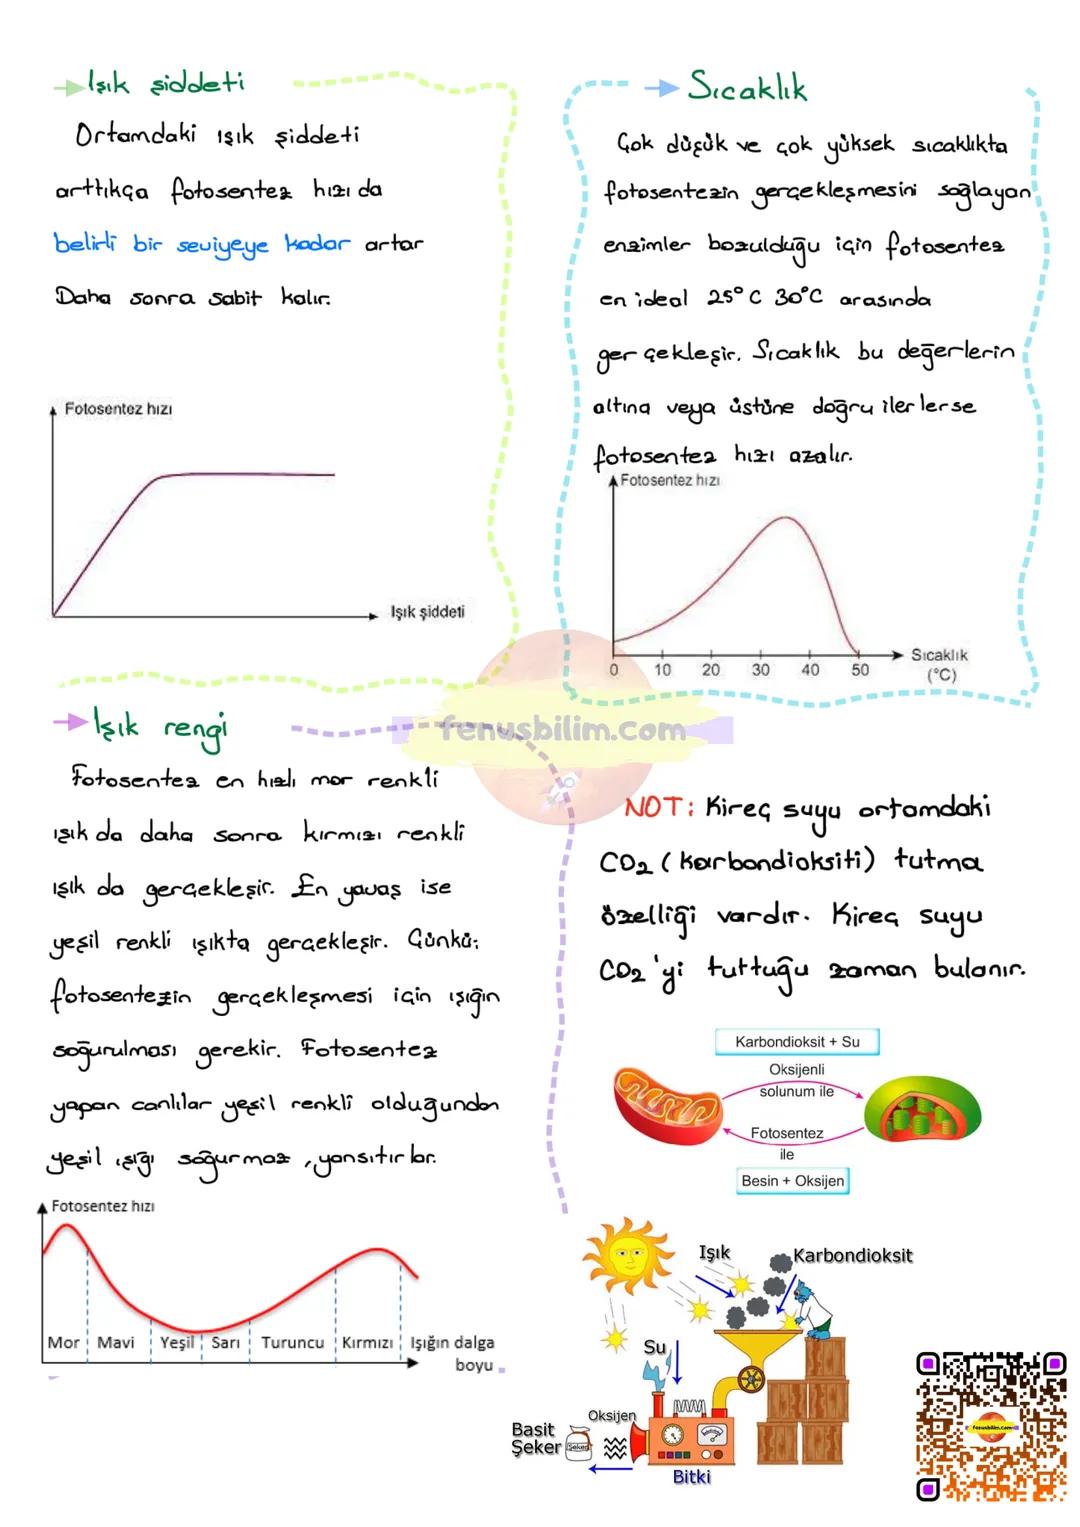 Işık şiddeti
Ortamdaki ışık şiddeti
arttıkça fotosentez hızı da
belirli bir seviyeye kadar artar
Daha sonra sabit kalır.
Fotosentez hızı
Işık şiddeti
Sıcaklık
Çok düşük ve çok yüksek sıcaklıkta
fotosentezin gerçekleşmesini sağlayan
enzimler bozulduğu için fotosentez
en ideal 25°C 30°C arasında
gerçekleşir. Sıcaklık bu değerlerin
altına veya üstüne doğru ilerlerse
fotosentez hızı azalır.
Fotosentez hızı
0 10 20 30 40 50
Sıcaklık
(°C)
fenusbilim.com
Işık rengi
Fotosentez en hızlı mor renkli
ışık da daha sonra kırmızı renkli
ışık da gerçekleşir. En yavaş ise
yeşil renkli ışıkta gerçekleşir. Çünkü;
fotosentezin gerçekleşmesi için ışığın
soğurulması gerekir. Fotosentez
yapan canlılar yeşil renkli olduğundan
yeşil ışığı soğurmaz, yansıtırlar.
Fotosentez hızı
Mor Mavi Yeşil Sarı Turuncu Kırmızı Işığın dalga
boyu
NOT: Kireç suyu ortamdaki
CO2 (karbondioksiti) tutma
özelliği vardır. Kireç suyu
CO2'yi tuttuğu zaman bulanır.
Karbondioksit + Su
Oksijenli
solunum ile
Fotosentez
ile
Besin + Oksijen
Işık
Karbondioksit
Su
Oksijen
Basit
Şeker
Şeker
Bitki
fenusbilim.com